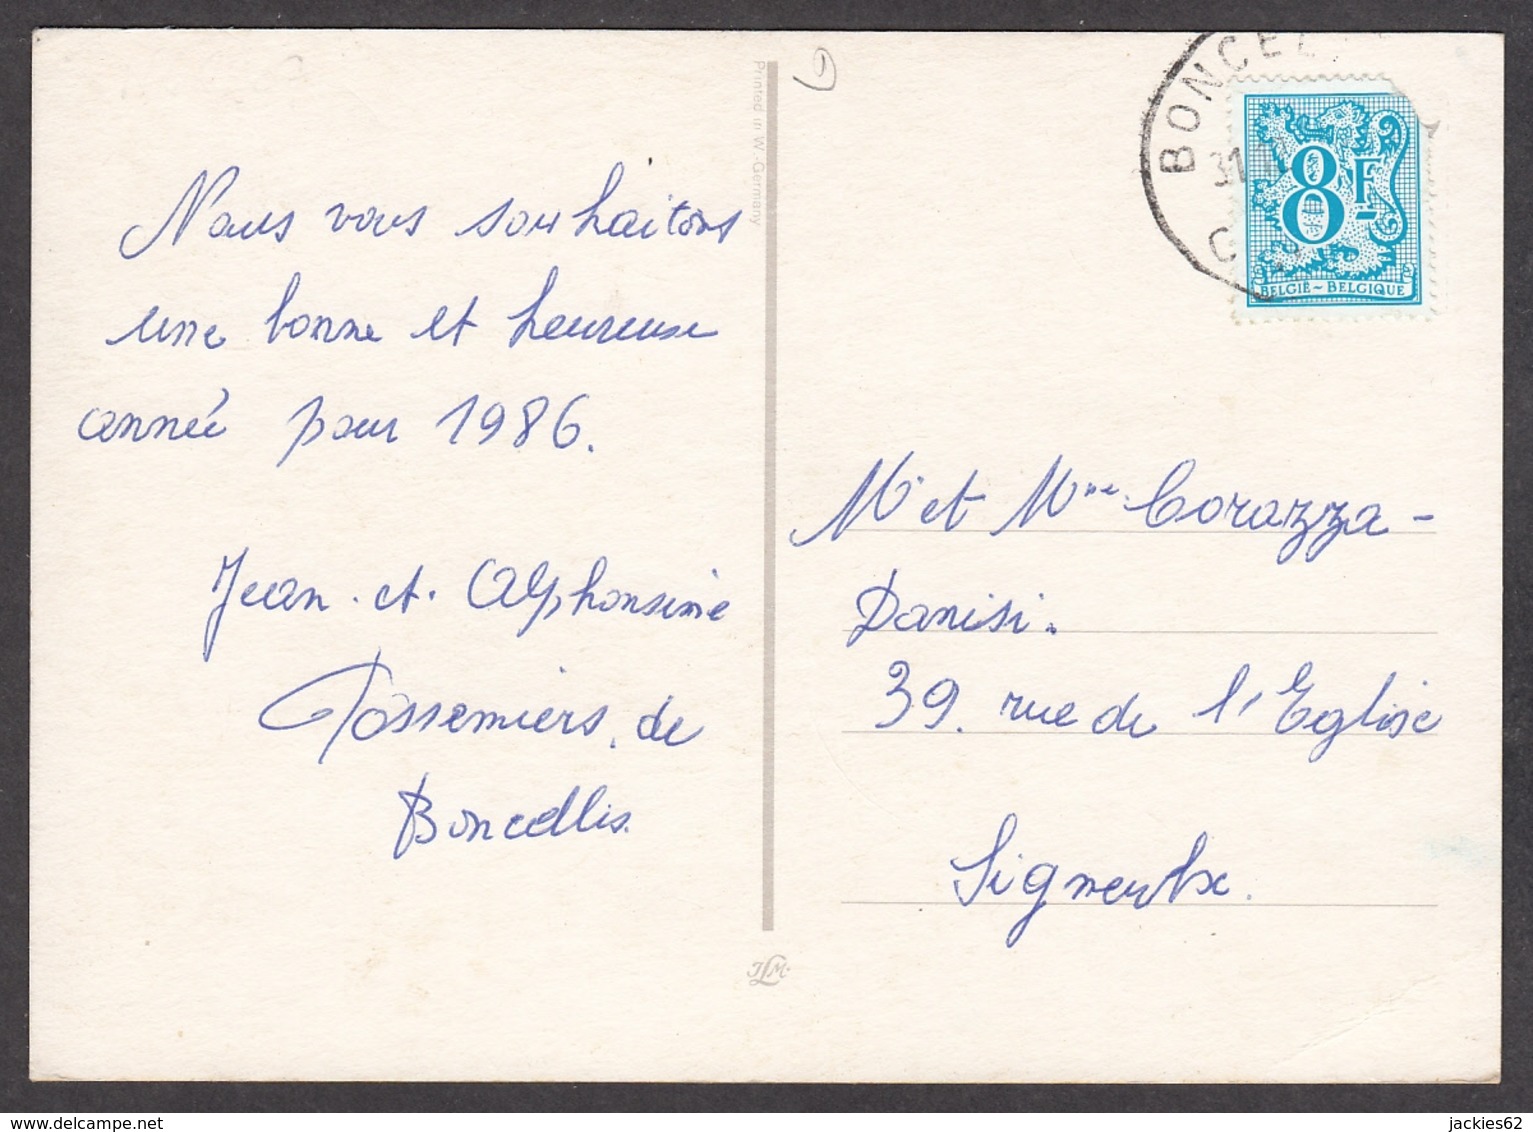 Nous vous souhaitons
une bonne et heureuse
année pour 1986.
Jean et Alphonsine
Possemiers. de
Boncelles.
Printed in W.-Germany
JLM
BONCEL
31
8F
BELGIË ~ BELGIQUE
Mr et Mme Corazza -
Danisi.
39. rue de l'Eglise
Signeulx.
delcampe.net
jackies62